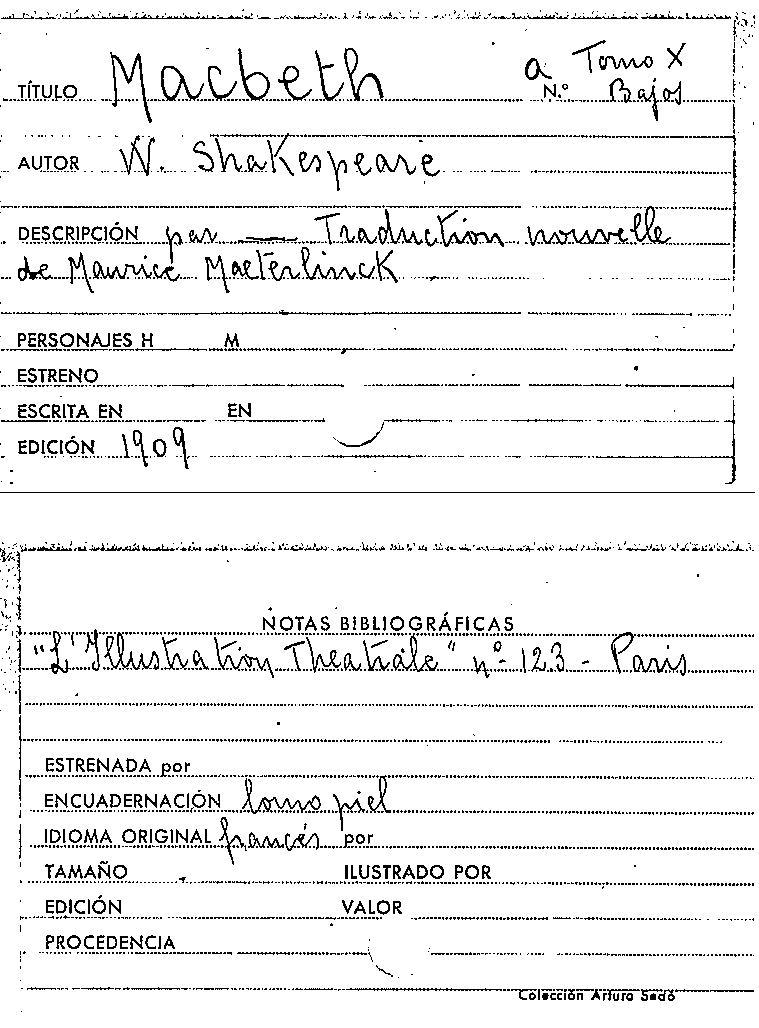 TÍTULO Macbeth a Tomo X
N.º Bajos
AUTOR W. Shakespeare
DESCRIPCIÓN par — Traduction nouvelle
de Maurice Maeterlinck
PERSONAJES H M
ESTRENO
ESCRITA EN EN
EDICIÓN 1909
NOTAS BIBLIOGRÁFICAS
"L'Illustration Theatrale" nº 123 - Paris
ESTRENADA por
ENCUADERNACIÓN lomo piel
IDIOMA ORIGINAL francés por
TAMAÑO ILUSTRADO POR
EDICIÓN VALOR
PROCEDENCIA
Colección Arturo Sedó